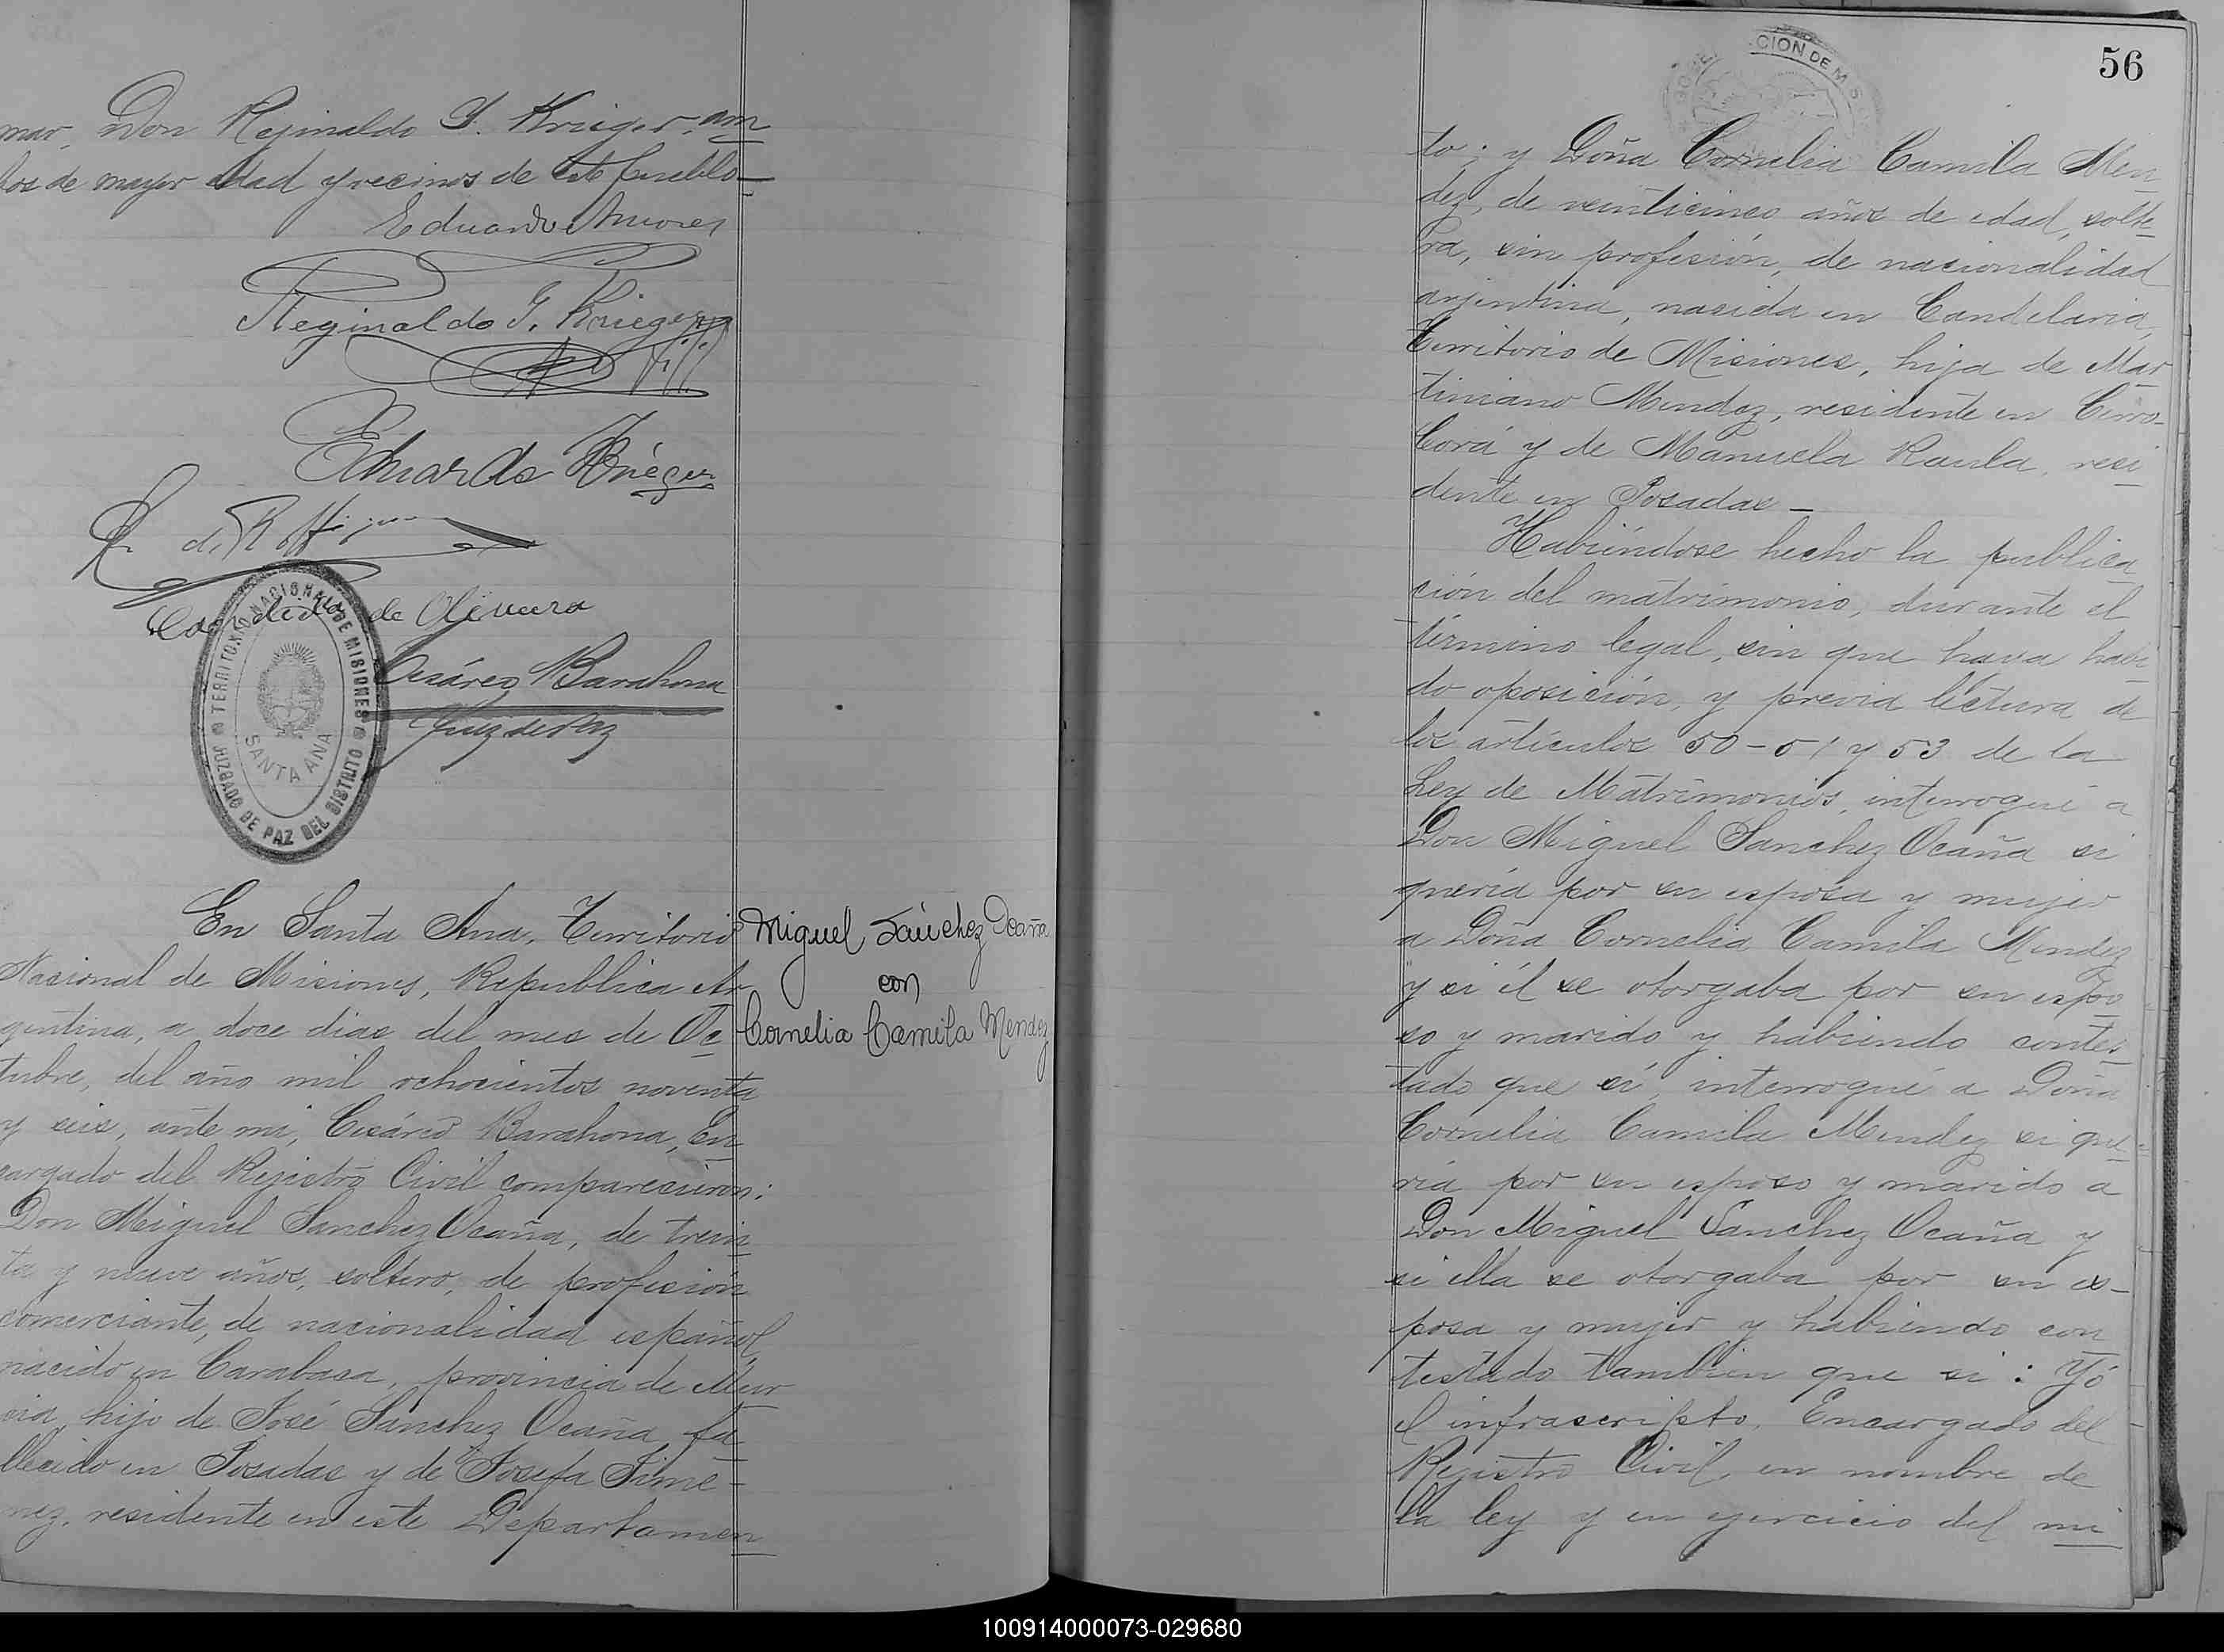 mar, Don Rejinaldo G. Krieger, am
bos de mayor edad y vecinos de este pueblo—
Eduardo Amores
Reginaldo G. Krieger
Eduardo Krieger
de Oliveira
Cesáreo Barahona
Juez de Paz
TERRITORIO NACIONAL DE MISIONES
JUZGADO DE PAZ DEL DISTRITO
SANTA ANA
En Santa Ana, Territorio
Nacional de Misiones, Republica Ar
gentina, a doce dias del mes de Oc
tubre, del año mil ochocientos noventa
y seis, ante mi, Cesáreo Barahona, En
cargado del Rejistro Civil comparecieron:
Don Miguel Sanchez Ocaña, de trein
ta y nueve años, soltero, de profesión
comerciante, de nacionalidad español,
nacido en Carabaca, provincia de Mur
cia, hijo de José Sanchez Ocaña, fa
llecido en Posadas y de Josefa Jime-
nez, residente en este Departamen
Miguel Sánchez Ocaña
con
Cornelia Camila Mendez
56
CION DE MIS
to; y Doña Cornelia Camila Men
dez, de veinticinco años de edad, solte
ra, sin profesión, de nacionalidad
arjentina, nacida en Candelaria,
Territorio de Misiones, hija de Mar
tiniano Mendez, residente en Cerro-
Corá y de Manuela Raula, resi
dente en Posadas—
Habiéndose hecho la publica
ción del matrimonio, durante el
término legal, sin que haya habi
do oposición, y previa lectura de
los artículos 50-51 y 53 de la
Ley de Matrimonios, interrogué a
Don Miguel Sanchez Ocaña si
quería por su esposa y mujer
a Doña Cornelia Camila Mendez
y si él se otorgaba por su espo
so y marido y habiendo contes
tado que sí, interrogué a Doña
Cornelia Camila Mendez si que
ría por su esposo y marido a
Don Miguel Sanchez Ocaña y
si ella se otorgaba por su es-
posa y mujer y habiendo con
testado tambien que si: Yó
el infrascripto, Encargado del
Rejistro Civil, en nombre de
la ley y en ejercicio del mi
100914000073-029680